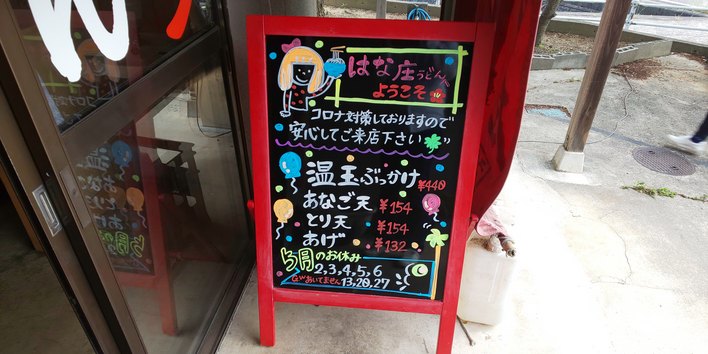 はな庄うどんへ
ようこそ
コロナ対策しておりますので
安心してご来店下さい
温玉ぶっかけ ¥440
あなご天 ¥154
とり天 ¥154
あげ ¥132
5月のお休み
2,3,4,5,6
GWあいてません 13,20,27